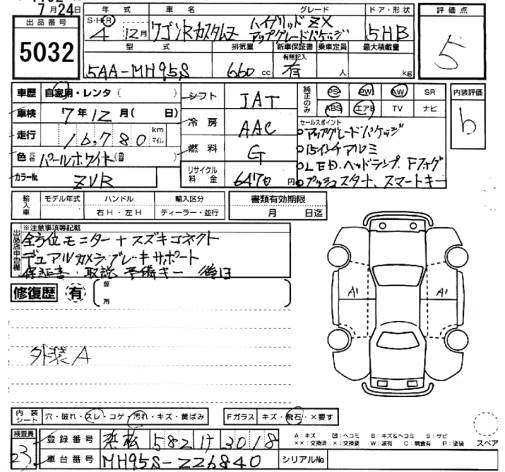 7月24日
出品番号
5032
年式 車名 グレード ドア・形状
S・H・R 4年 12月 ワゴンRカスタムZ ハイブリッドZX アップグレードパッケージ 5HB
型式 排気量 新車保証書 乗車定員 最大積載量
有無記入
5AA-MH95S 660cc 有 人 kg
評価点
5
車歴 自家用・レンタ( )
車検 7年12月( )日
走行 16,780 km マイル
色 パールホワイト
カラーNo. ZVR
シフト IAT
冷房 AAC
燃料 G
リサイクル料金 6470円
純正のみ PS PW AW SR
ABS エアB TV ナビ
内装評価
b
セールスポイント
アップグレードパッケージ
15インチアルミ
LED.ヘッドランプ、Fフォグ
プッシュスタート、スマートキー
輸入車 モデル年式 ハンドル 輸入区分 書類有効期限
年 右H・左H ディーラー・並行 月 日迄
出品店申告欄
※注意事項等記載
全方位モニター+スズキコネクト
デュアルカメラブレーキサポート
保証書・取説 予備キー 後日
修復歴 有 箇所
外装A
A1 A1
内装シート 穴・破れ・スレ・コゲ 汚れ・キズ・黄ばみ Fガラス キズ・飛石・×要す
検査員
23
登録番号 浜松 582 け 3018
車台番号 MH95S-226840 シリアルNo.
A:キズ U:ヘコミ B:キズ&ヘコミ S:サビ
××:交換済 ×:交換 W:波有 C:腐食有 P:塗装 スペア